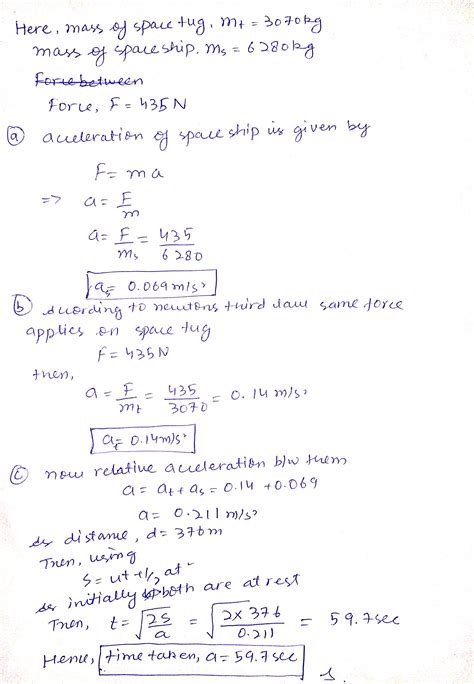 Here, mass of space tug, mt = 3070kg
mass of spaceship, ms = 6280kg
Force between
Force, F = 435N
(a) acceleration of space ship is given by
F = ma
=> a = F/m
a = F/ms = 435/6280
as = 0.069 m/s²
(b) according to newtons third law same force
applies on space tug
F = 435N
then,
a = F/mt = 435/3070 = 0.14 m/s²
at = 0.14m/s²
(c) now relative acceleration b/w them
a = at + as = 0.14 + 0.069
a = 0.211 m/s²
distance, d = 376m
Then, using
S = ut + 1/2 at²
initially both are at rest
Then, t = √2S/a = √2x376/0.211 = 59.7sec
Hence, time taken, a = 59.7sec
s.